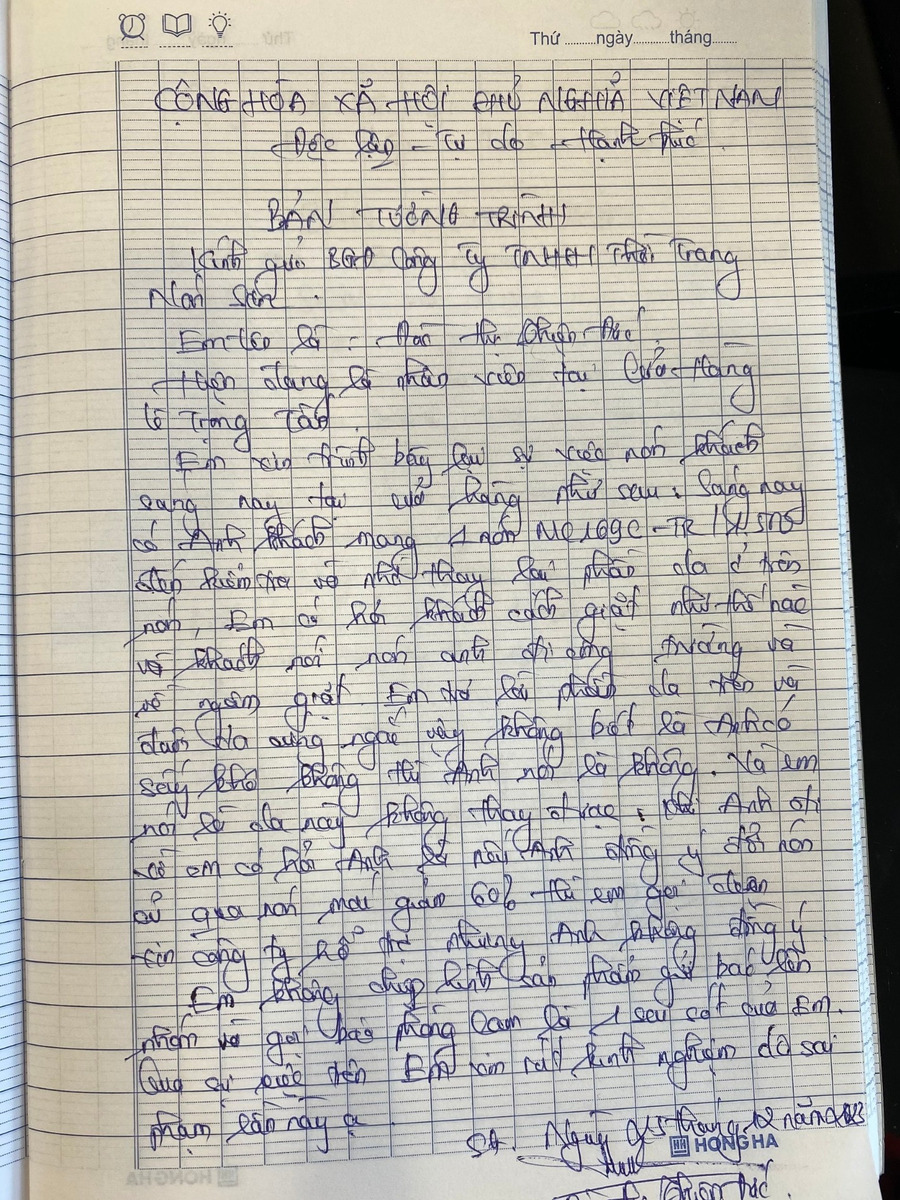 Thứ ngày tháng
CỘNG HÒA XÃ HỘI CHỦ NGHĨA VIỆT NAM
Độc lập - Tự do - Hạnh Phúc
BẢN TƯỜNG TRÌNH
Kính gửi BGĐ Công ty TNHH Thời Trang
Nón Sơn.
Em tên là : thị
Hiện đang là nhân viên tại Cửa Hàng
Lê Trọng Tấn
Em xin trình bày lại sự việc nón khách
sáng nay tại cửa hàng như sau: Sáng nay
có Anh khách mang 1 nón MC169C-TR
đến kiểm tra và nhờ thay lại phần da ở trên
nón, Em có hỏi khách cách giặt như thế nào
và khách nói nón anh đi công trường và
về ngâm giặt. Em trả lời phần da trên và
da cứng ngắc vậy không biết là Anh có
sấy khô không thì Anh nói là không. Và em
nói là da này không thay được, khi Anh đi
về em có hỏi Anh là nếu Anh đồng ý đổi nón
cũ qua nón mới giảm 60% thì em gọi điện
xin công ty hỗ trợ nhưng Anh không đồng ý
Em không chụp hình sản phẩm gửi báo lên
nhóm và gọi báo phòng Cam là 1 sai sót của Em.
Qua sự việc trên Em xin rút kinh nghiệm do sai
phạm lần này ạ
SG. Ngày 05 tháng 12 năm 2023
HONG HA